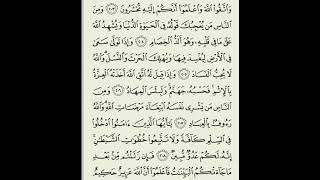 وَاتَّقُوا اللَّهَ وَاعْلَمُوا أَنَّكُمْ إِلَيْهِ تُحْشَرُونَ ٢٠٣ وَمِنَ
النَّاسِ مَن يُعْجِبُكَ قَوْلُهُ فِي الْحَيَوٰةِ الدُّنْيَا وَيُشْهِدُ اللَّهَ
عَلَىٰ مَا فِي قَلْبِهِ وَهُوَ أَلَدُّ الْخِصَامِ ٢٠٤ وَإِذَا تَوَلَّىٰ سَعَىٰ
فِي الْأَرْضِ لِيُفْسِدَ فِيهَا وَيُهْلِكَ الْحَرْثَ وَالنَّسْلَ وَاللَّهُ
لَا يُحِبُّ الْفَسَادَ ٢٠٥ وَإِذَا قِيلَ لَهُ اتَّقِ اللَّهَ أَخَذَتْهُ الْعِزَّةُ
بِالْإِثْمِ فَحَسْبُهُ جَهَنَّمُ وَلَبِئْسَ الْمِهَادُ ٢٠٦ وَمِنَ
النَّاسِ مَن يَشْرِي نَفْسَهُ ابْتِغَاءَ مَرْضَاتِ اللَّهِ وَاللَّهُ
رَءُوفٌ بِالْعِبَادِ ٢٠٧ يَٰأَيُّهَا الَّذِينَ ءَامَنُوا ادْخُلُوا
فِي السِّلْمِ كَافَّةً وَلَا تَتَّبِعُوا خُطُوَٰتِ الشَّيْطَٰنِ
إِنَّهُ لَكُمْ عَدُوٌّ مُّبِينٌ ٢٠٨ فَإِن زَلَلْتُم مِّن بَعْدِ
مَا جَاءَتْكُمُ الْبَيِّنَٰتُ فَاعْلَمُوا أَنَّ اللَّهَ عَزِيزٌ حَكِيمٌ